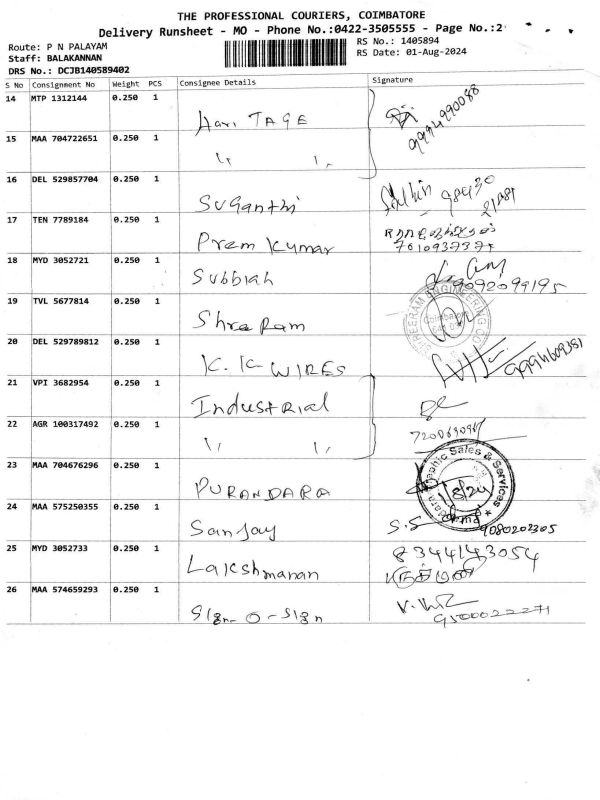 THE PROFESSIONAL COURIERS, COIMBATORE
Delivery Runsheet - MO - Phone No.:0422-3505555 - Page No.:2
Route: P N PALAYAM
RS No.: 1405894
Staff: BALAKANNAN
RS Date: 01-Aug-2024
DRS No.: DCJB140589402
S No Consignment No Weight PCS Consignee Details Signature
14 MTP 1312144 0.250 1 Hari TAGE 9994990088
15 MAA 704722651 0.250 1 " "
16 DEL 529857704 0.250 1 Suganthi
17 TEN 7789184 0.250 1 Prem Kumar
18 MYD 3052721 0.250 1 Subbiah 9092099195
19 TVL 5677814 0.250 1 Shree Ram
SHREERAM ENGINEERING CO
20 DEL 529789812 0.250 1 K.K WIRES
21 VPI 3682954 0.250 1 Industrial
22 AGR 100317492 0.250 1 " "
23 MAA 704676296 0.250 1 PURANDARA
Sales & Services
1/8/24
24 MAA 575250355 0.250 1 Sanjay S.S 9080202305
25 MYD 3052733 0.250 1 Lakshmanan 8344143054
26 MAA 574659293 0.250 1 Sign-O-Sign 9500022271